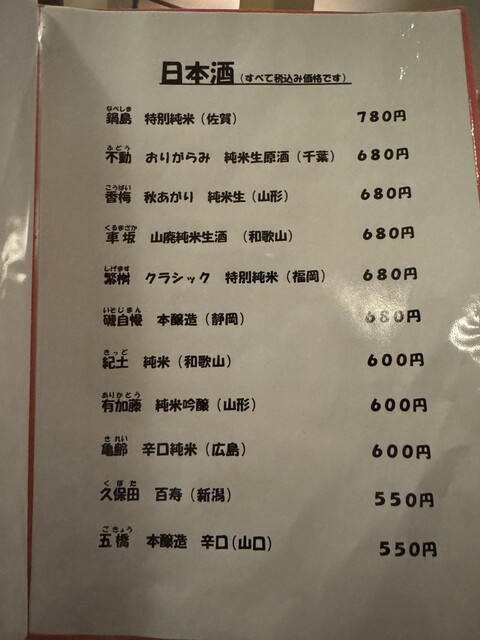 日本酒（すべて税込み価格です）
なべしま
鍋島 特別純米（佐賀） 780円
ふどう
不動 おりがらみ 純米生原酒（千葉） 680円
こうばい
香梅 秋あがり 純米生（山形） 680円
くるまざか
車坂 山廃純米生酒 （和歌山） 680円
しげます
繁桝 クラシック 特別純米（福岡） 680円
いそじまん
磯自慢 本醸造（静岡） 680円
きっど
紀土 純米（和歌山） 600円
ありかとう
有加藤 純米吟醸（山形） 600円
きれい
亀齢 辛口純米（広島） 600円
くぼた
久保田 百寿（新潟） 550円
ごきょう
五橋 本醸造 辛口（山口） 550円